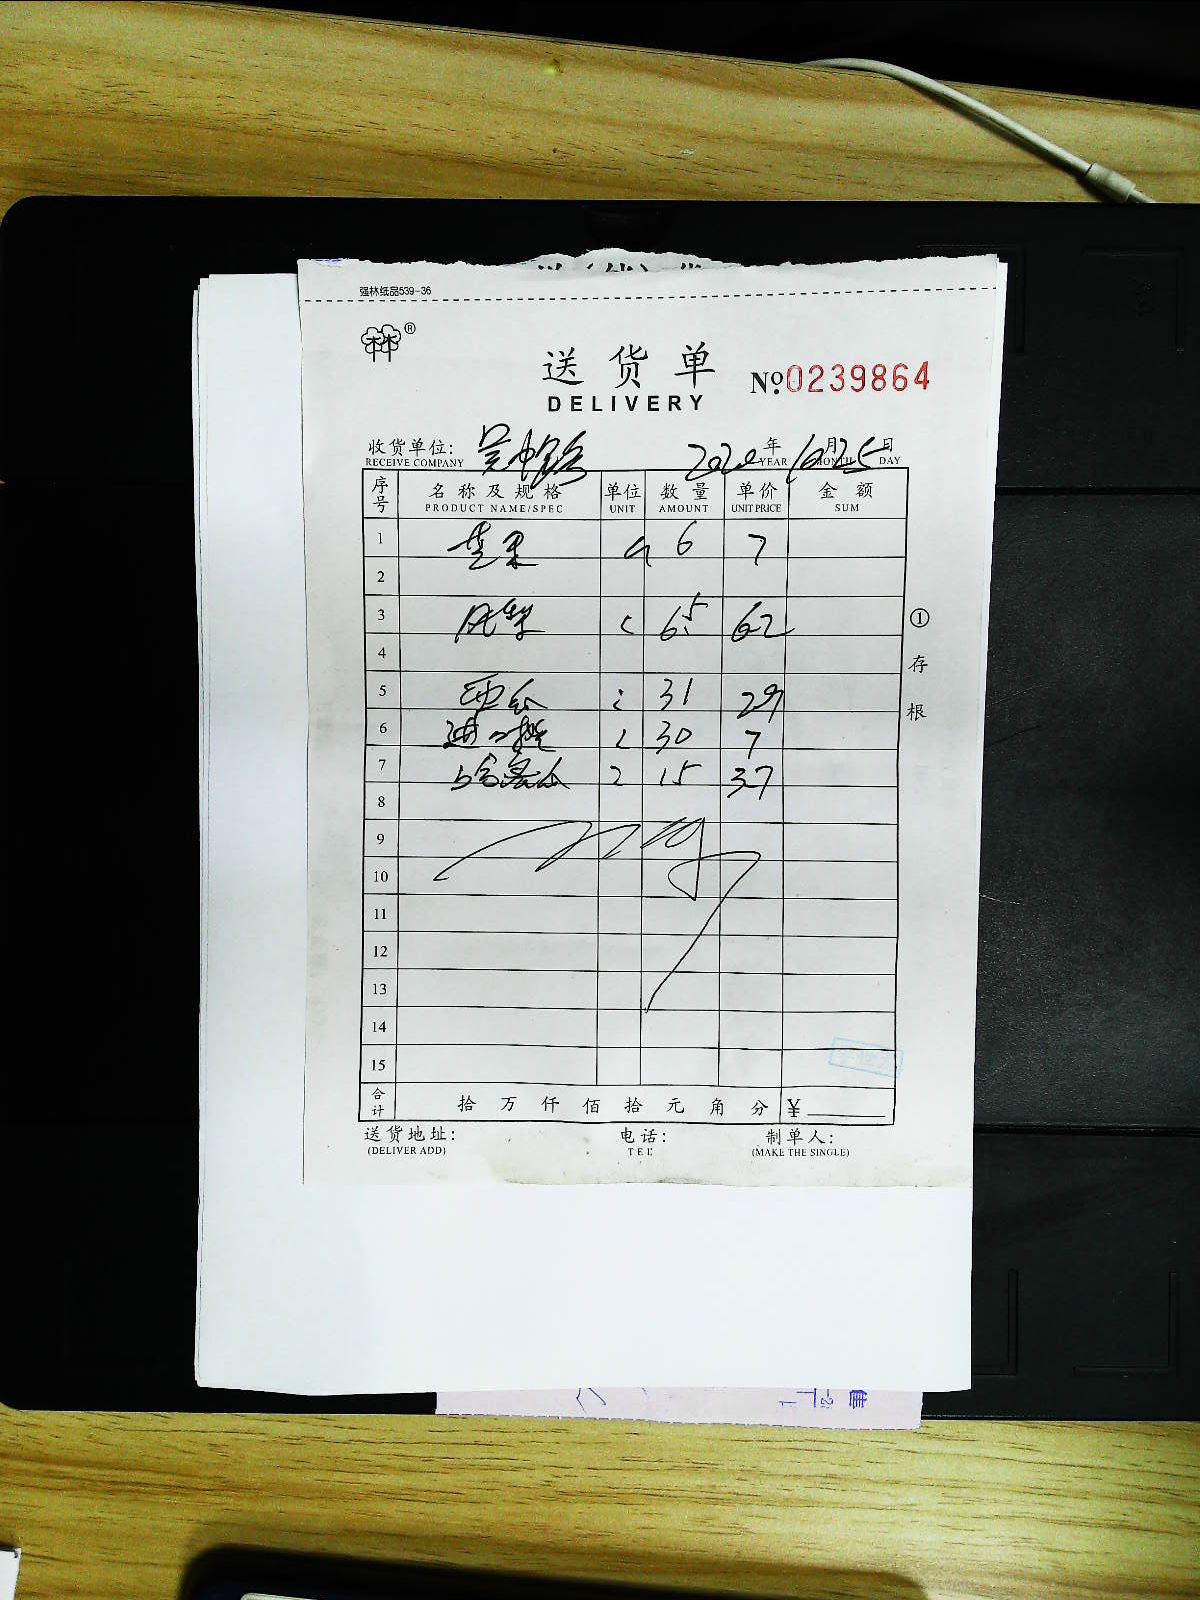 强林纸品539-36
林林®
送货单 No.0239864
DELIVERY
收货单位: 吴中路 2020年10月25日
RECEIVE COMPANY YEAR MONTH DAY
序号 名称及规格 单位 数量 单价 金额
PRODUCT NAME/SPEC UNIT AMOUNT UNIT PRICE SUM
1 苹果 6 7
2
3 65 62
4
5 西瓜 31 29
6 进口橙 30 7
7 哈密瓜 15 37
8
9
10
11
12
13
14
15
合计 拾万仟佰拾元角分 ¥
送货地址: 电话: 制单人:
(DELIVER ADD) TEL (MAKE THE SINGLE)
①存根